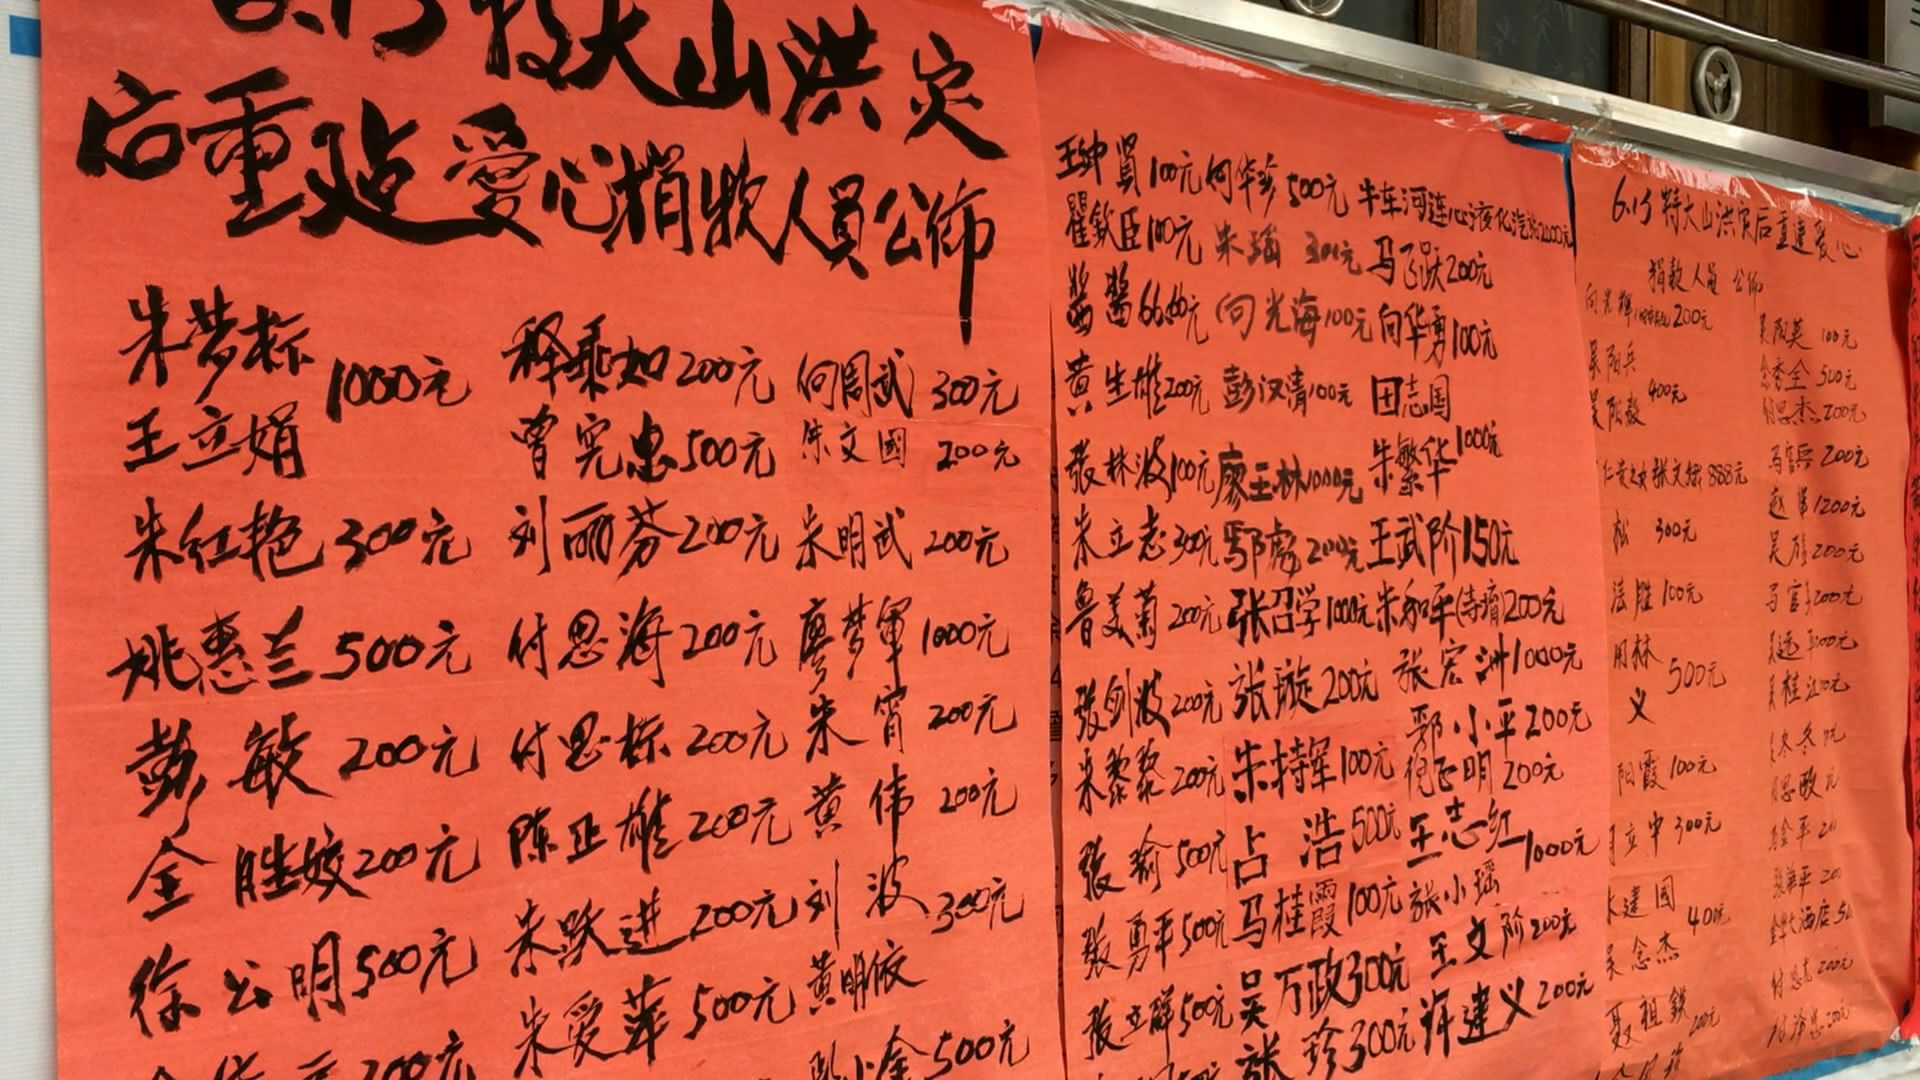 6.15特大山洪灾
后重建爱心捐款人员公佈
朱梦标
1000元
王立娟
朱红艳 300元
姚惠兰 500元
彭敏 200元
金胜姣 200元
徐公明 500元
释乘如 200元
曾宪忠 500元
刘丽芬 200元
付思海 200元
付思标 200元
陈正雄 200元
朱跃进 200元
朱爱萍 500元
何周武 300元
朱文國 200元
朱明武 200元
廖梦軍 1000元
朱宵 200元
黄伟 200元
刘波 300元
黄明依
500元
王钟賢 100元
瞿欽臣 100元
酱酱 66.60元
黄生雄 200元
張林波 100元
朱立志 300元
鲁美菊 200元
張剑波 200元
朱黎黎 200元
張瑜 500元
張勇平 500元
張立群 500元
何华珍 500元
朱瑙 300元
向光海 100元
彭汉清 100元
廖王林 1000元
200元
张召学 1000元
张璇 200元
朱持军 100元
占浩 500元
马桂霞 100元
吴万政 300元
张珍 300元
牛车河连心液化汽站 2000元
马了跃 200元
向华勇 100元
田志国
1000元
朱繁华
王武阶 150元
朱和平(寺痟) 200元
张宏洲 1000元
鄢小平 200元
倪正明 200元
王志红
1000元
张小瑶
王文阶 200元
蒋建义 200元
6.15特大山洪灾后重建爱心
捐款人员公佈
向光輝 200元
吴阳兵
400元
吴阳毅
888元
松 300元
法胜 100元
用林
500元
义
阳霞 100元
立中 300元
朱建国
400元
吴念杰
聂祖鉄 200元
吴阳英 100元
余秀全 500元
付思杰 200元
马官兵 200元
赵军 1200元
吴刚 200元
马官 200元
吴桂江
马金平
张華平 200
酒店
付思 200元